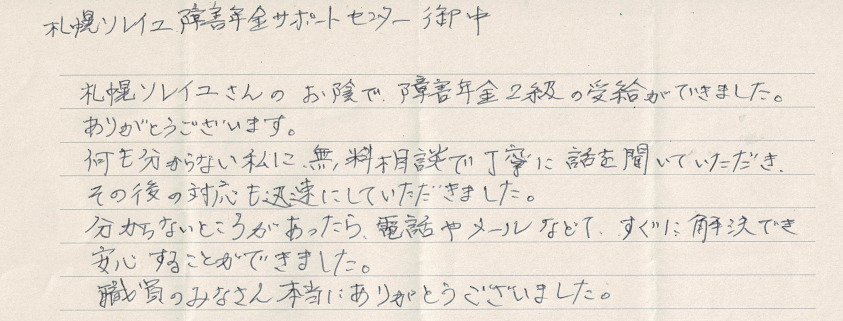 札幌ソレイユ障害年金サポートセンター御中
札幌ソレイユさんのお陰で、障害年金2級の受給ができました。
ありがとうございます。
何も分からない私に、無料相談で丁寧に話を聞いていただき、
その後の対応も迅速にしていただきました。
分からないところがあったら、電話やメールなどで、すぐに解決でき
安心することができました。
職員のみなさん本当にありがとうございました。